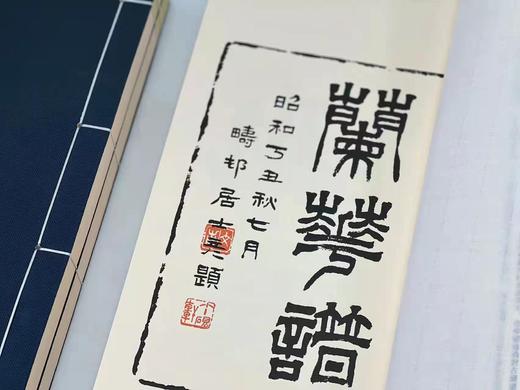 蘭華譜
昭和丁丑秋七月
疇邨居士題